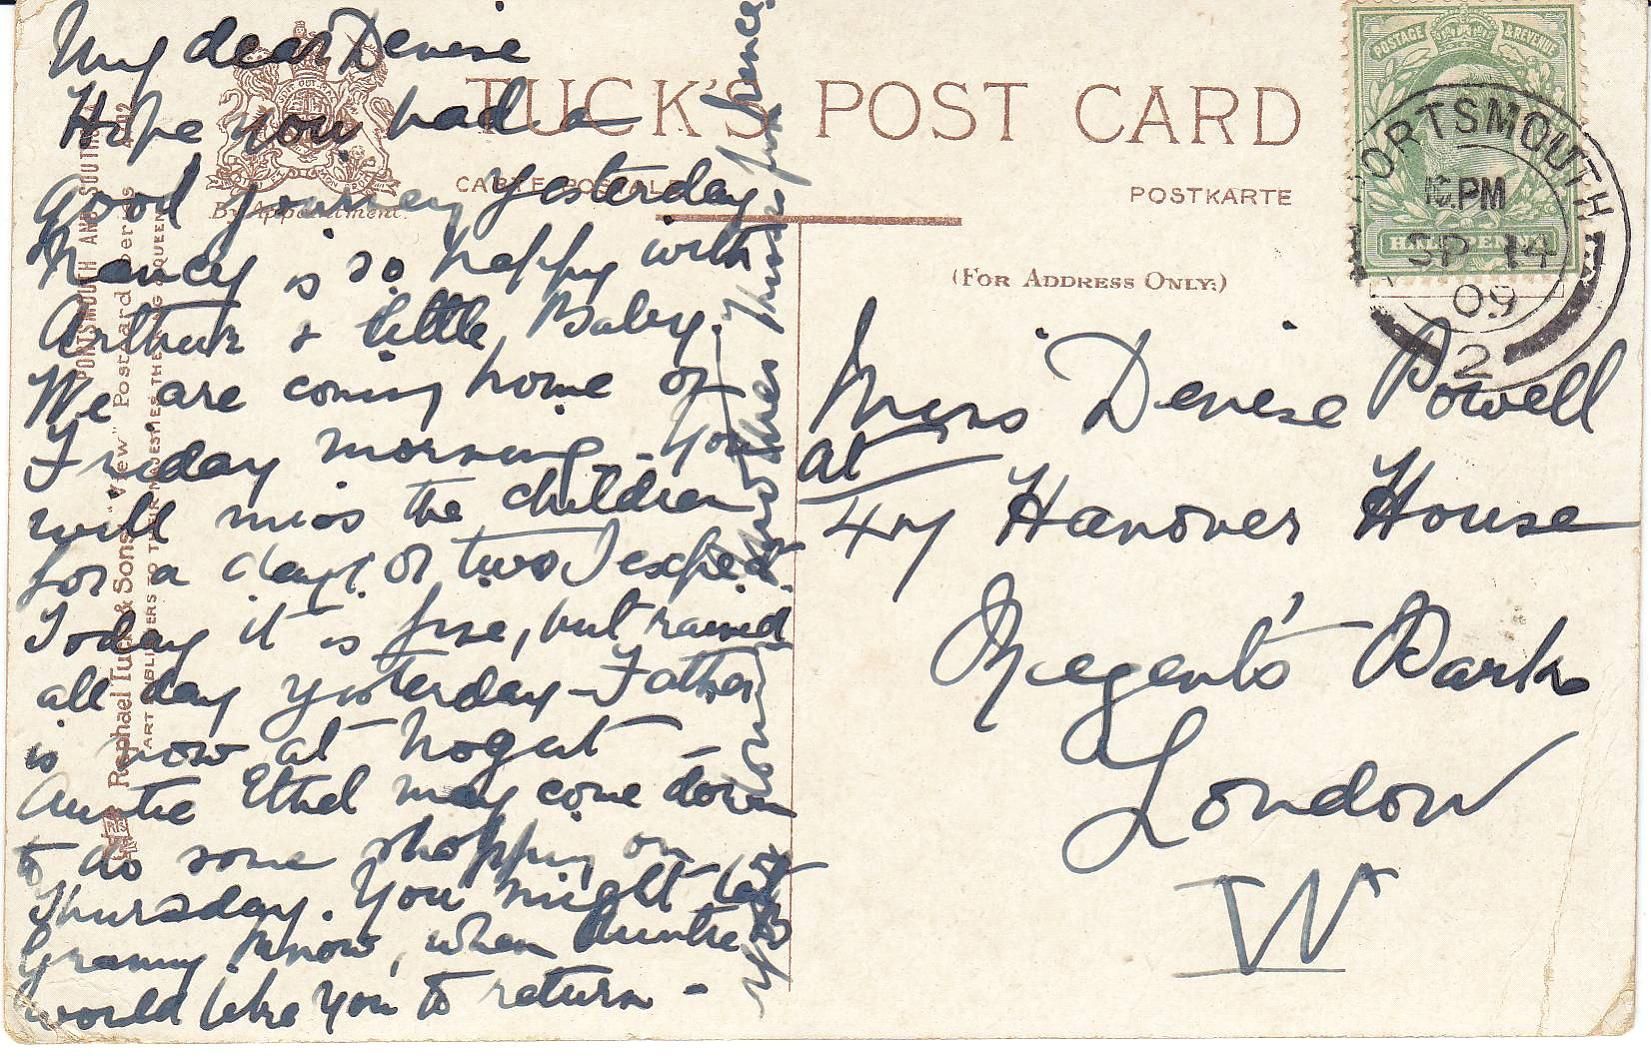 My dear Denise
Hope you had a
good journey yesterday
Nancy is so happy with
Arthur & little Baby.
We are coming home on
Friday morning - You
will miss the children
for a day or two I expect.
Today it is fine, but rained
all day yesterday - Father
is now at
Auntie Ethel may come down
to do some shopping on
Thursday. You might let
Granny know, when Auntie B
would like you to return -
TUCK'S POST CARD
CARTE POSTALE
POSTKARTE
(FOR ADDRESS ONLY.)
By Appointment.
POSTAGE & REVENUE
HALFPENNY
PORTSMOUTH
PM
SP 14
09
2
Miss Denise Powell
at
47 Hanover House
Regent's Park
London
W
Raphael Tuck & Sons' "View" Postcard Series
PORTSMOUTH AND SOUTHSEA
ART PUBLISHERS TO THEIR MAJESTIES THE KING & QUEEN
Mother